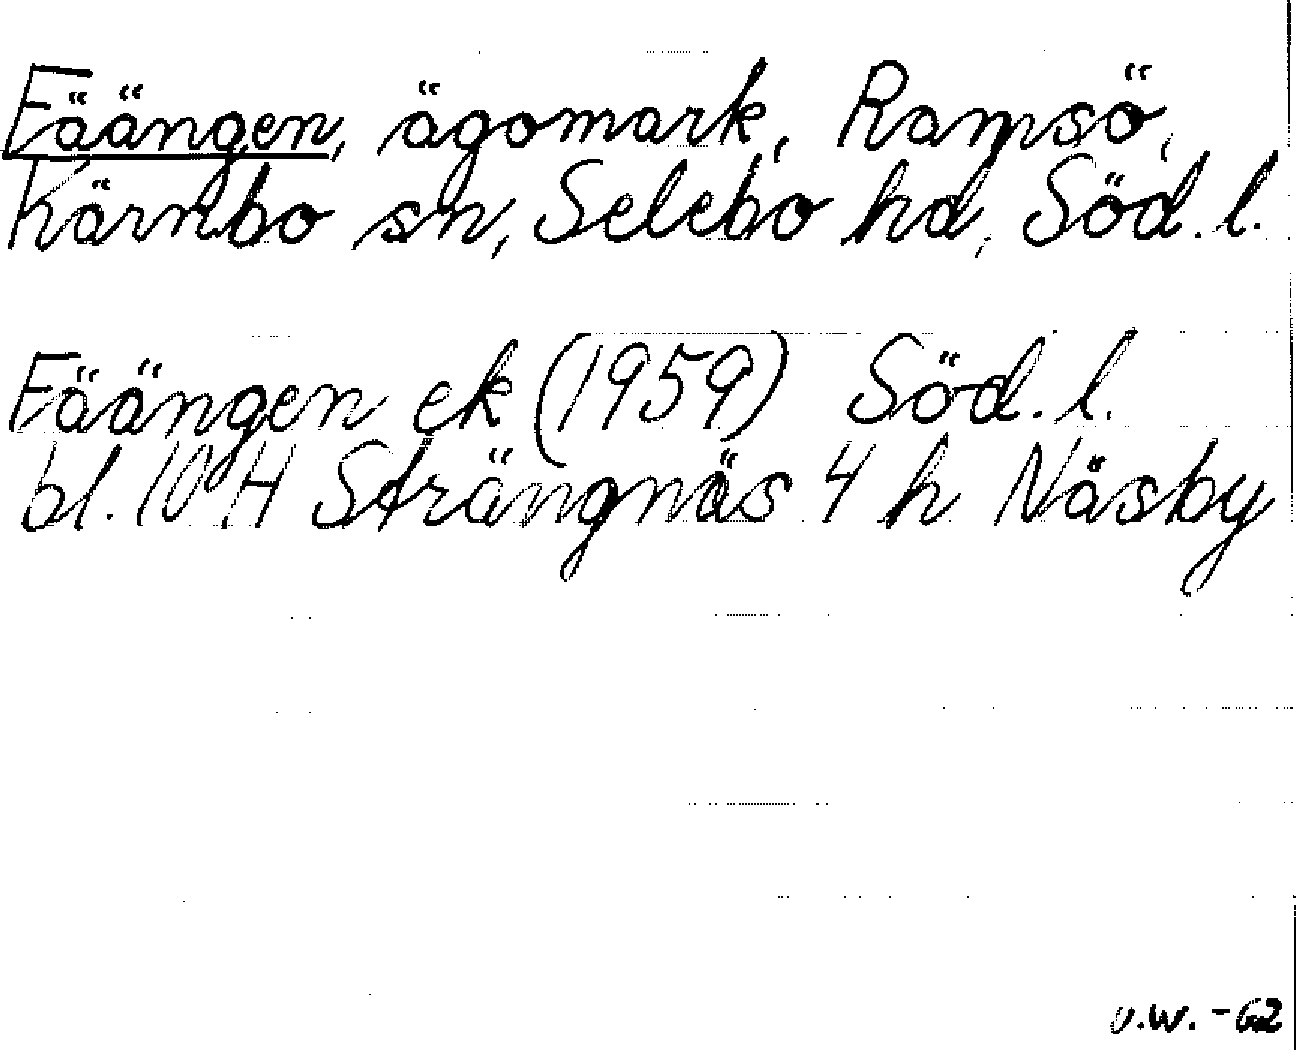 Fäängen, ägomark, Ramsö,
Kärnbo sn, Selebo hd, Söd. l.
Fäängen ek (1959) Söd. l.
bl. 10 H Strängnäs 4 h Näsby
U.W. - 62